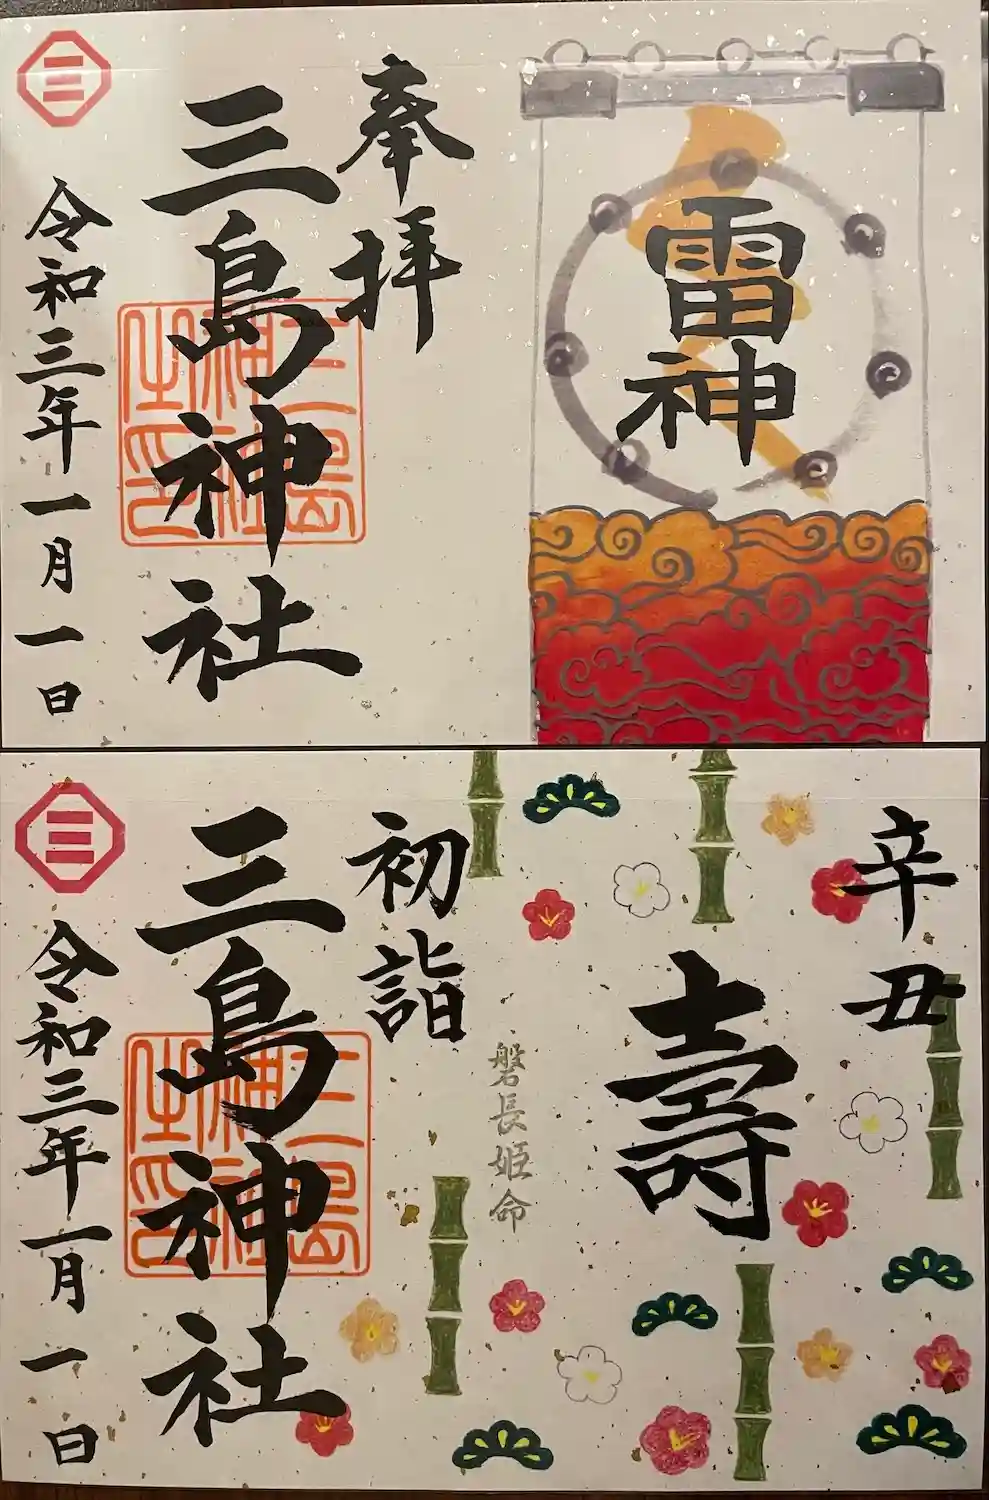 雷神
奉拝
三島神社
三島神社之印
令和三年一月一日
三
辛丑
壽
磐長姫命
初詣
三島神社
三島神社之印
令和三年一月一日
三